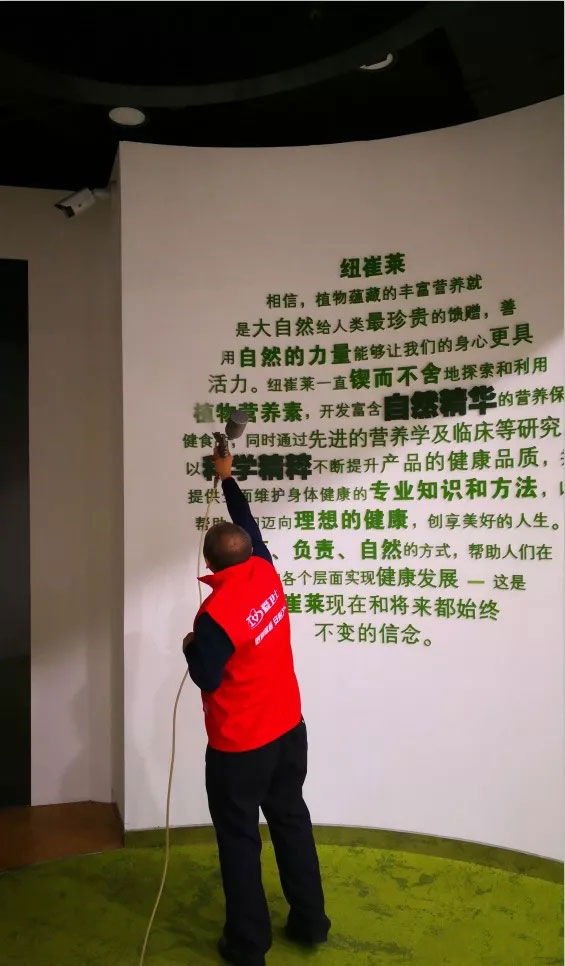 纽崔莱
相信，植物蕴藏的丰富营养就
是大自然给人类最珍贵的馈赠，善
用自然的力量能够让我们的身心更具
活力。纽崔莱一直锲而不舍地探索和利用
植物营养素，开发富含自然精华的营养保
健食 ，同时通过先进的营养学及临床等研究
以科学精粹不断提升产品的健康品质，
提供 面维护身体健康的专业知识和方法，
帮助 们迈向理想的健康，创享美好的人生。
、负责、自然的方式，帮助人们在
各个层面实现健康发展 — 这是
崔莱现在和将来都始终
不变的信念。